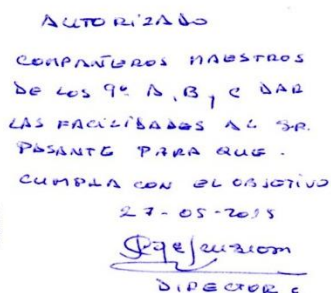 AUTORIZADO
COMPAÑEROS MAESTROS
DE LOS 9º A, B, C DAR
LAS FACILIDADES AL SR.
PASANTE PARA QUE.
CUMPLA CON EL OBJETIVO
27-05-2015
DIRECTOR